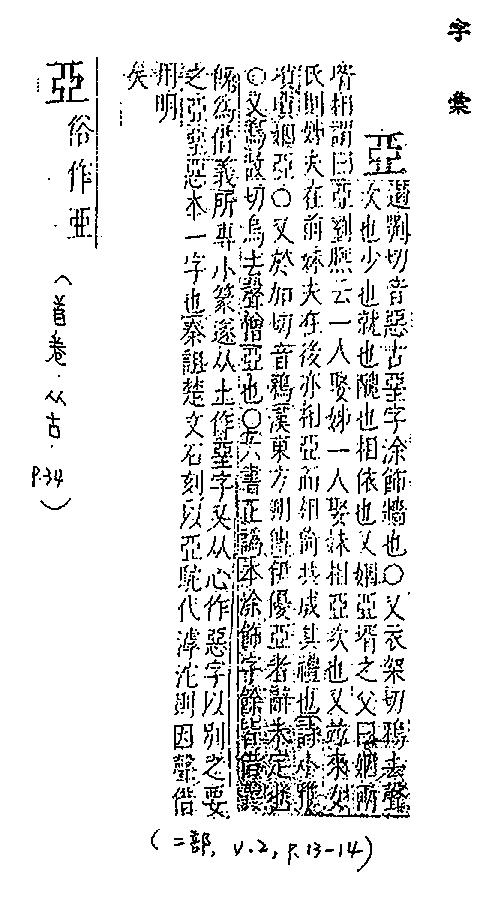 字彙
亞
遏鄂切音惡古堊字涂飾牆也○又衣架切鴉去聲
次也少也就也醜也相依也又姻亞壻之父曰姻兩
壻相謂曰亞劉熙云一人娶姊一人娶妹相亞次也又竝來女
氏則姊夫在前妹夫在後亦相亞而相倚共成其禮也詩小雅
瑣瑣姻亞○又於加切音鴉漢東方朔傳伊優亞者辭未定也
○又烏故切烏去聲憎亞也○六書正譌本涂飾字餘皆借義
後為借義所專小篆遂从土作堊字又从心作惡字以別之要
之亞堊惡本一字也秦詛楚文石刻以亞駝代滹沱則因聲借
用明
矣
亞 俗作亜
(首卷.从古.P.34)
(二部, v.2, P.13-14)